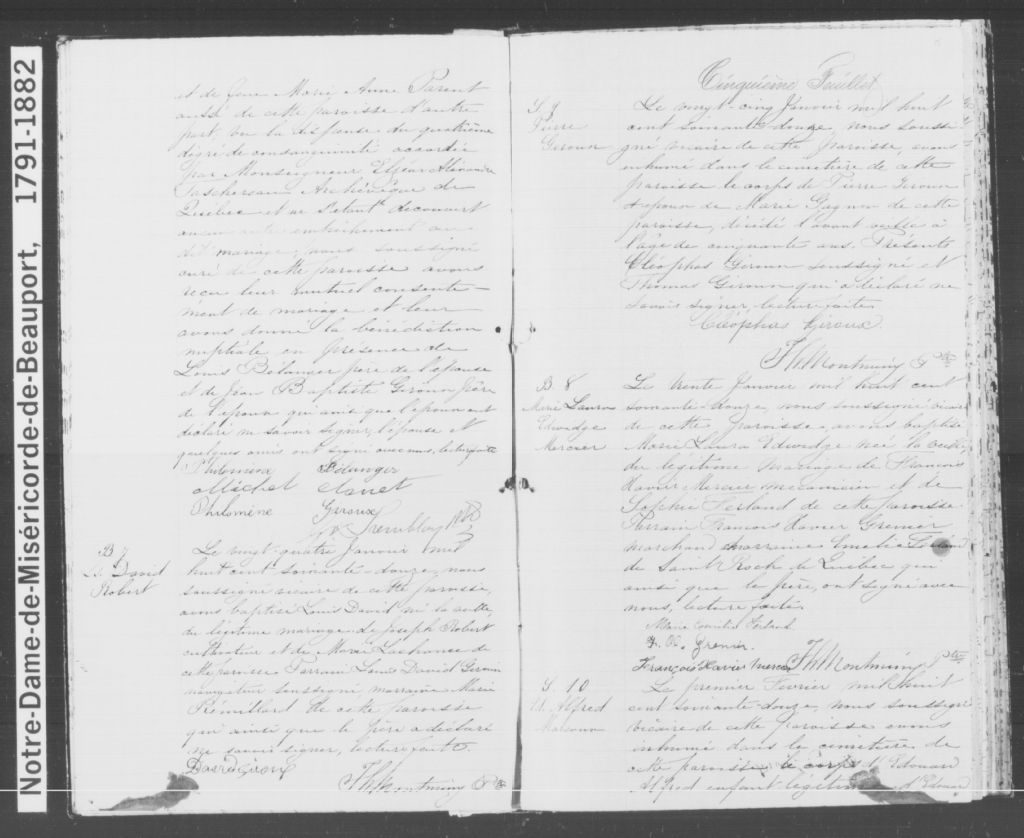 Notre-Dame-de-Miséricorde-de-Beauport, 1791-1882
et de feue Marie Anne Parent
aussi de cette paroisse d'autre
part vu la dispense du quatrième
dégré de consanguinité accordée
par Monseigneur Elzéar Alexandre
Taschereau Archévêque de
Québec et ne s'étant découvert
aucun autre empêchement au
dit mariage, nous soussigné
curé de cette paroisse avons
reçu leur mutuel consente-
ment de mariage et leur
avons donné la bénédiction
nuptiale en présence de
Louis Bélanger père de l'épouse
et de Jean Baptiste Giroux frère
de l'époux qui ainsi que l'époux ont
déclaré ne savoir signer, l'épouse et
quelques amis ont signé avec nous, lecture faite
Philomène Bélanger
Michel
Philomène Giroux
Tremblay
B 7
Ls David
Robert
Le vingt-quatre Janvier mil
huit cent soixante-douze, nous
soussigné vicaire de cette paroisse,
avons baptisé Louis David né la veille,
du légitime mariage de Joseph Robert
cultivateur et de Marie Lachance de
cette paroisse Parrain Louis David Giroux
navigateur soussigné, marraine Marie
Rémillard de cette paroisse
qui ainsi que le père a déclaré
ne savoir signer, lecture faite.
David Giroux
Th Montminy Ptre
Cinquième Feuillet
S. 9
Pierre
Giroux
Le vingt-cinq Janvier mil huit
cent soixante-douze, nous soussi
gné vicaire de cette paroisse, avons
inhumé dans le cimetière de cette
paroisse le corps de Pierre Giroux
époux de Marie Gagnon de cette
paroisse, décédé l'avant veille à
l'âge de cinquante ans. Présents
Cléophas Giroux soussigné et
Thomas Giroux qui a déclaré ne
savoir signer, lecture faite
Cléophas Giroux
Th Montminy Ptre
B 8
Marie Laura
Edwidge
Mercier
Le trente Janvier mil huit cent
soixante-douze, nous soussigné vicaire
de cette paroisse, avons baptisé
Marie Laura Edwidge née la veille,
du légitime mariage de François
Xavier Mercier mécanicien et de
Sophie Ferland de cette paroisse
Parrain François Xavier Grenier
marchand marraine Emélie Ferland
de Saint Roch de Québec qui
ainsi que le père, ont signé avec
nous, lecture faite.
Marie Ferland
F. X. Grenier.
François Xavier Mercier Th Montminy Ptre
S. 10
Ed. Alfred
Le premier Février mil huit
cent soixante-douze, nous soussigné
vicaire de cette paroisse avons
inhumé dans le cimetière de
cette paroisse le corps d'Edouard
Alfred enfant légitime d'Edouard